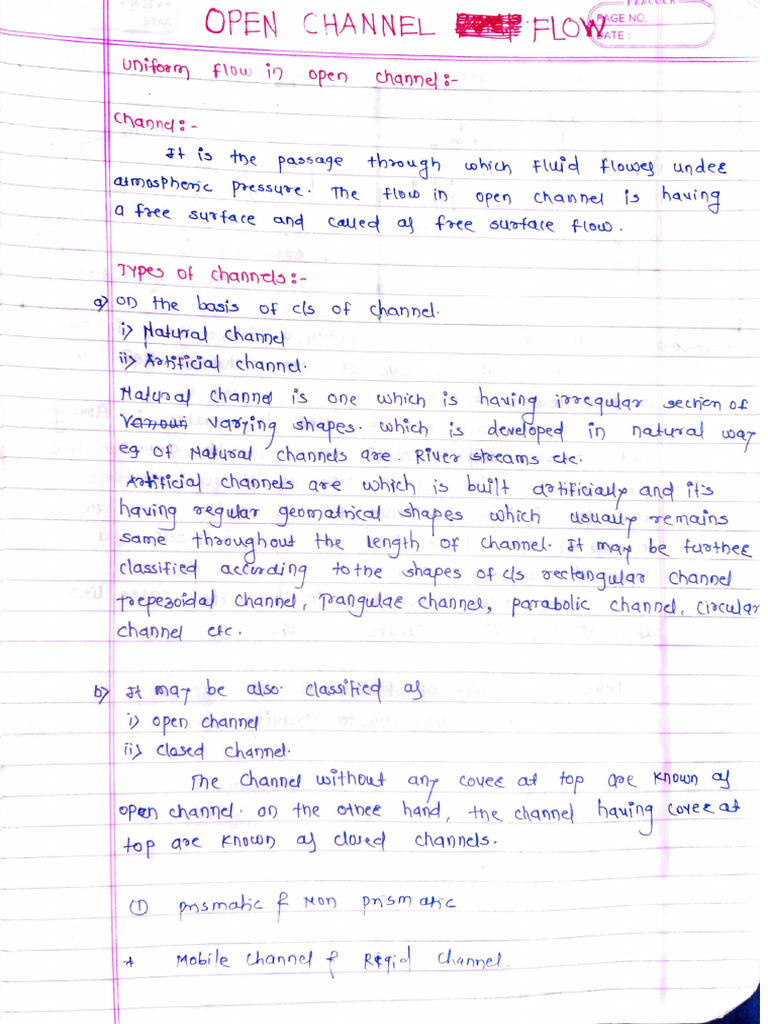 PEACOCK
PAGE NO.
DATE :
OPEN CHANNEL FLOW
Uniform flow in open channel:-
Channel:-
It is the passage through which fluid flows under
atmospheric pressure. The flow in open channel is having
a free surface and called as free surface flow.
Types of channels:-
a) on the basis of c/s of channel.
i) Natural channel
ii) Artificial channel.
Natural channel is one which is having irregular section of
Varroun varying shapes. which is developed in natural way
eg of Natural channels are. River streams etc.
Artificial channels are which is built artificially and it's
having regular geomatrical shapes which usually remains
same throughout the length of channel. It may be further
classified according to the shapes of c/s rectangular channel
trepezoidal channel, Trangular channel, parabolic channel, circular
channel etc.
b) It may be also. classified as
i) open channel
ii) closed channel.
The channel without any cover at top are known as
open channel. on the other hand, the channel having cover at
top are known as closed channels.
① prismatic & Non prismatic
* Mobile channel & Rigid channel.